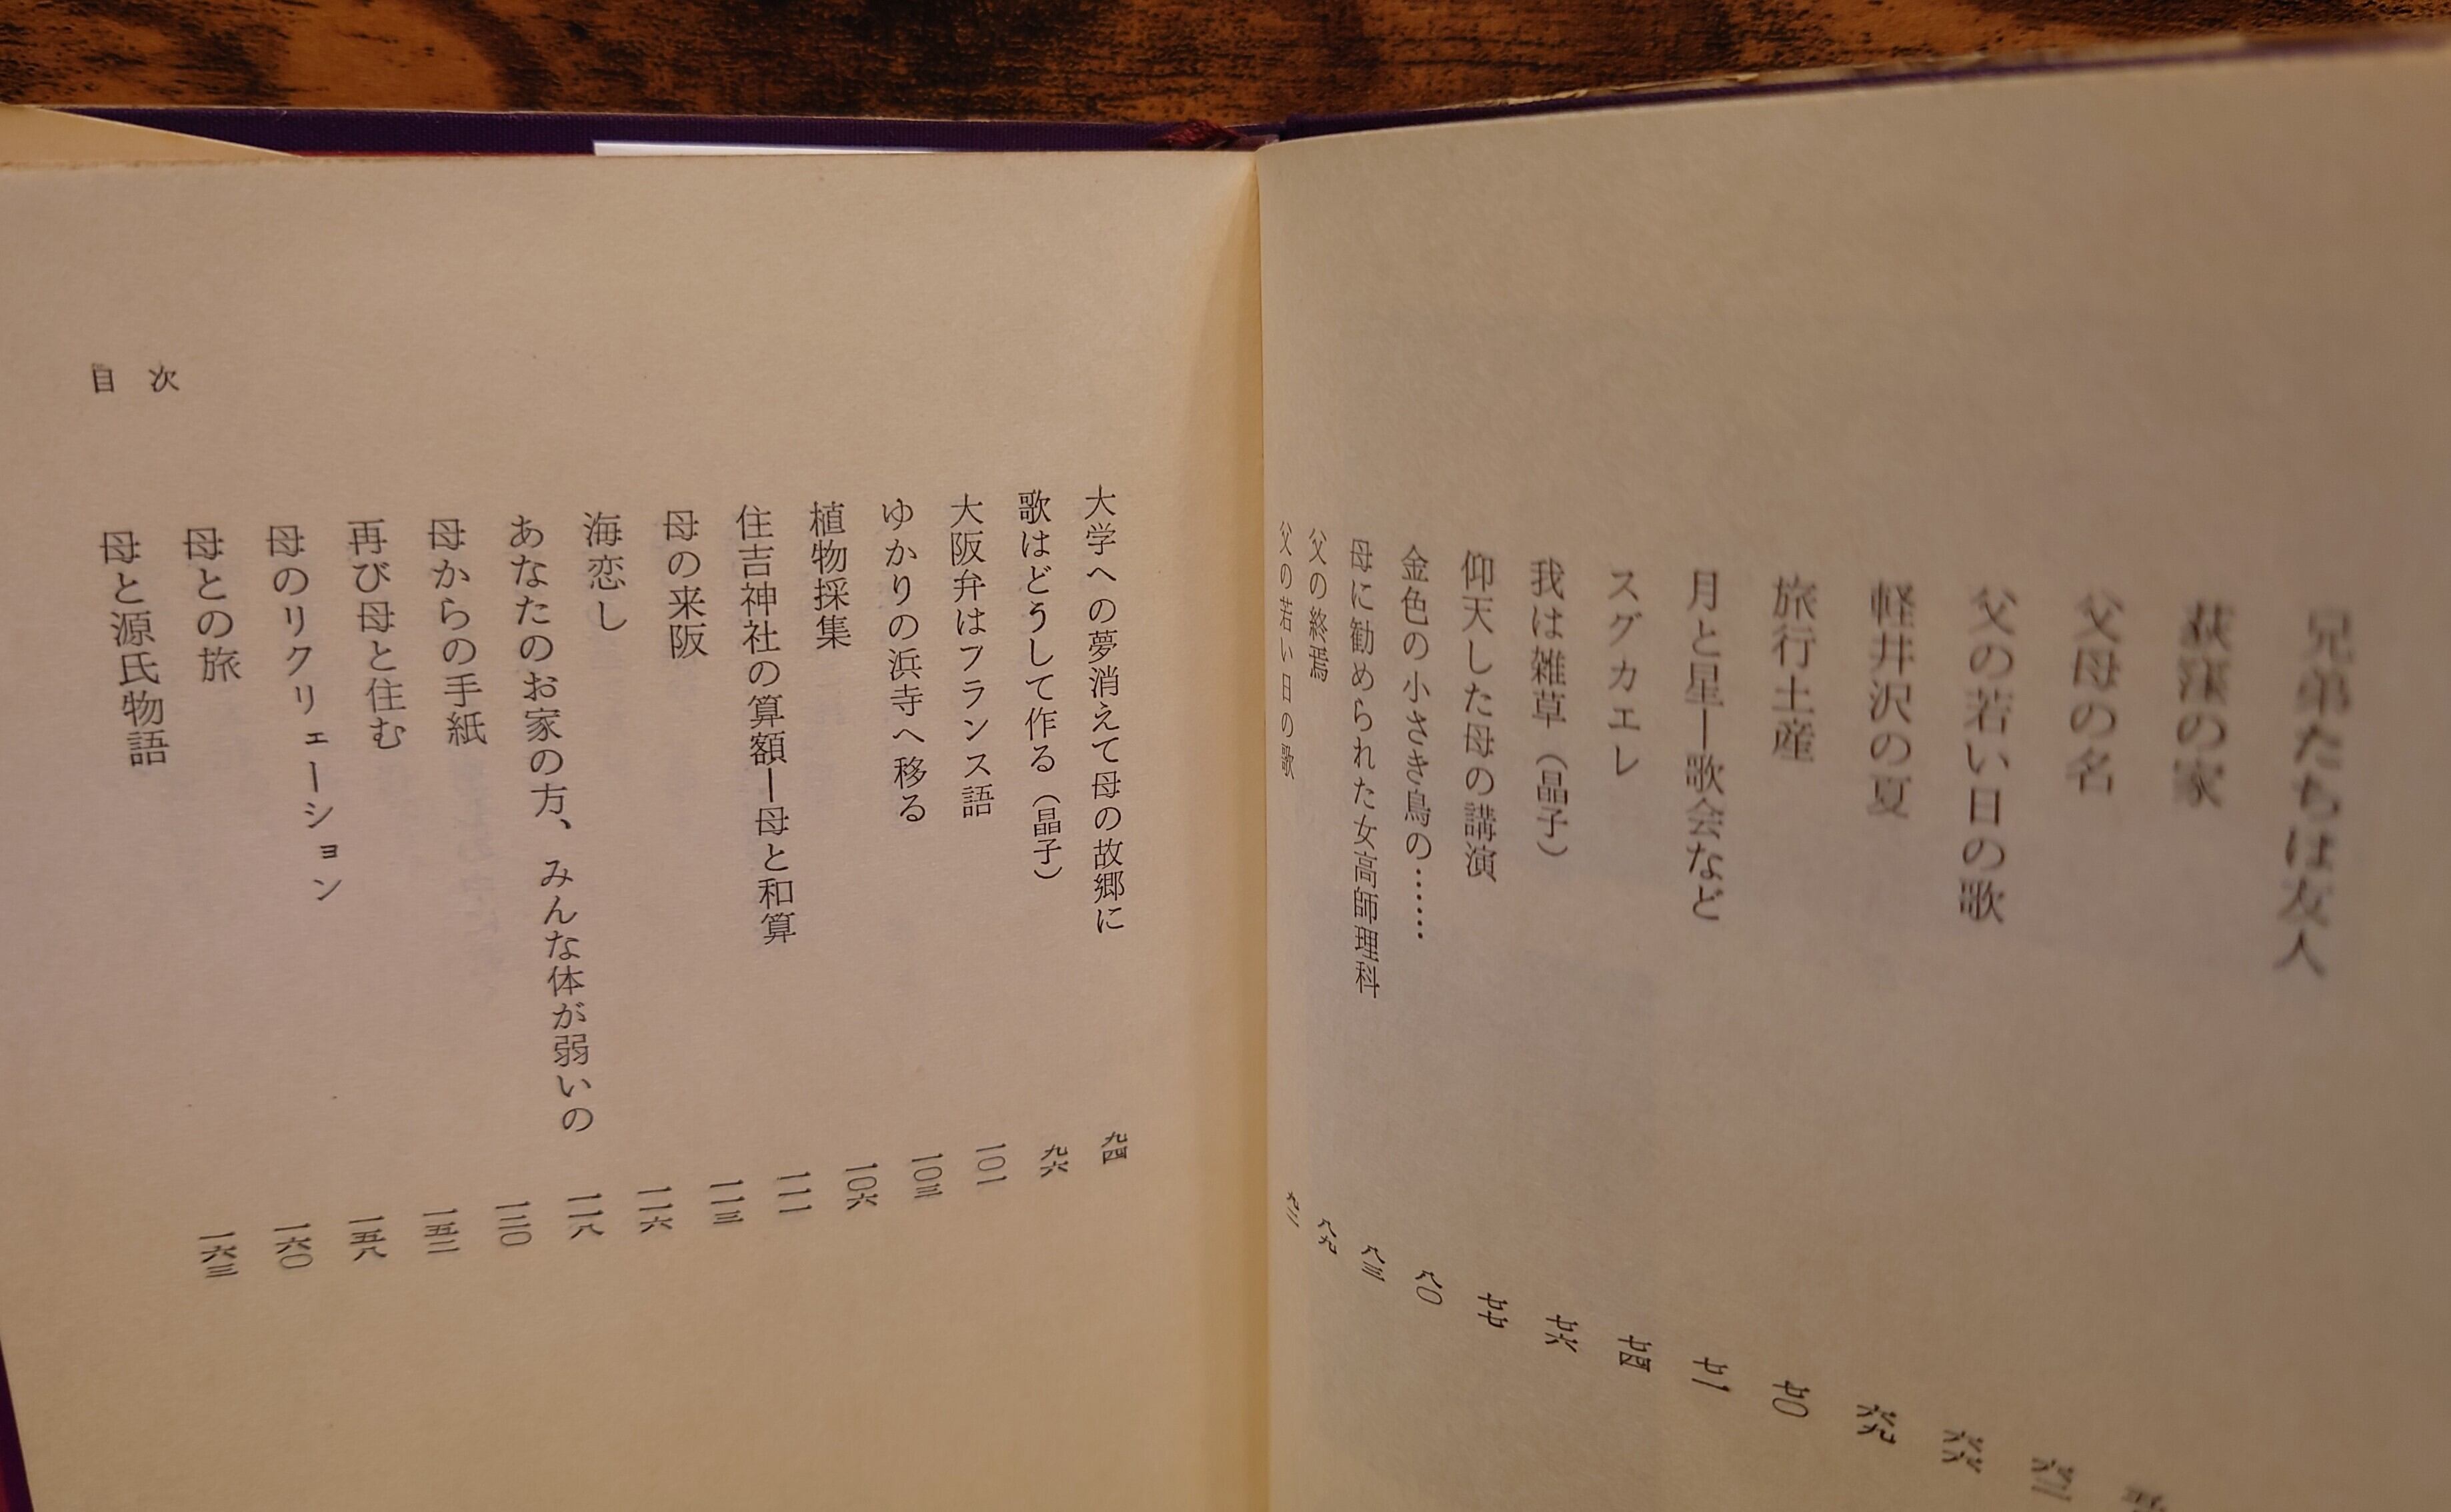 兄弟たちは友人
荻窪の家
父母の名
父の若い日の歌 六六
軽井沢の夏 六九
旅行土産 七〇
月と星―歌会など 七一
スグカエレ 七四
我は雑草（晶子） 七六
仰天した母の講演 七七
金色の小さき鳥の…… 八〇
母に勧められた女高師理科 八三
父の終焉 八九
父の若い日の歌
目次
大学への夢消えて母の故郷に 九四
歌はどうして作る（晶子） 九六
大阪弁はフランス語 一〇一
ゆかりの浜寺へ移る 一〇三
植物採集 一〇六
住吉神社の算額―母と和算 一一一
母の来阪 一一三
海恋し 一一六
あなたのお家の方、みんな体が弱いの 一一八
母からの手紙 一二〇
再び母と住む 一五二
母のリクリェーション 一五八
母との旅 一六〇
母と源氏物語 一六三